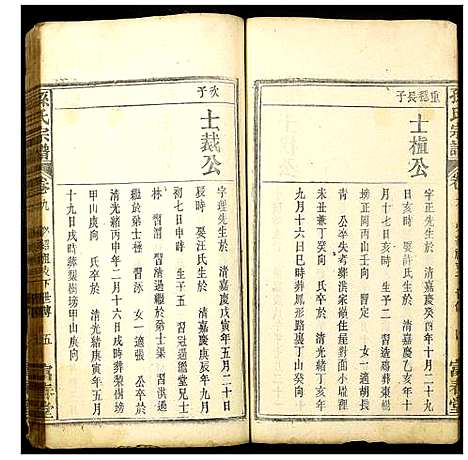 重穩長子
士植公
字正先生於 清嘉慶四年十月二十九
日亥時 娶許氏生於 清嘉慶乙亥年十
月十七日亥時 生子二 習造鷄葬東樹
塝正丙山壬向 習定 女一適胡長
青 公卒失考葬洪家嶺住屋對面小嶺
未丑兼丁癸向 氏卒於 清光緒六年
九月十六日巳時葬鳳形路裏丁山癸向
次子
士裁公
字理先生於 清嘉慶戊寅年五月二十日
辰時 娶汪氏生於 清嘉慶庚辰年九月
初七日申時 生子五 習冠過繼堂兄士
習清過繼於弟士渠 習洪過
繼於弟士極 習淋 女一適張 公卒於
清光緒丙申年二月十六日戌時葬梨樹塝
甲山庚向 氏卒於 清光緒庚寅年五月
十九日戌時葬梨樹塝甲山庚向
孫氏宗譜
卷九
五
富春堂